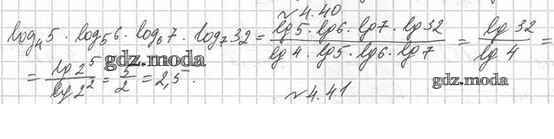 №4.40
log₄5 · log₅6 · log₆7 · log₇32 = (lg5 · lg6 · lg7 · lg32)/(lg4 · lg5 · lg6 · lg7) = lg32/lg4 =
= lg2⁵/lg2² = 5/2 = 2,5.
gdz.moda
gdz.moda
№4.41